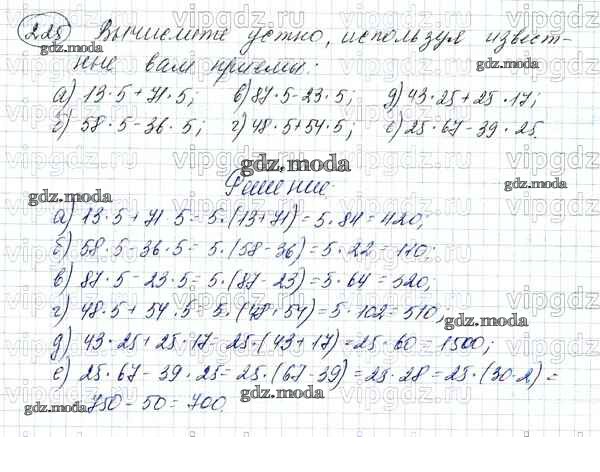 225 Вычислите устно, используя извест-
ные вам приемы:
а) 13·5+71·5; в) 87·5-23·5; д) 43·25+25·17;
б) 58·5-36·5; г) 48·5+54·5; е) 25·67-39·25.
gdz.moda
Решение.
а) 13·5+71·5=5·(13+71)=5·84=420;
б) 58·5-36·5=5·(58-36)=5·22=110;
в) 87·5-23·5=5·(87-23)=5·64=320;
г) 48·5+54·5=5·(48+54)=5·102=510;
д) 43·25+25·17=25·(43+17)=25·60=1500;
е) 25·67-39·25=25·(67-39)=25·28=25·(30-2)=
=750-50=700.